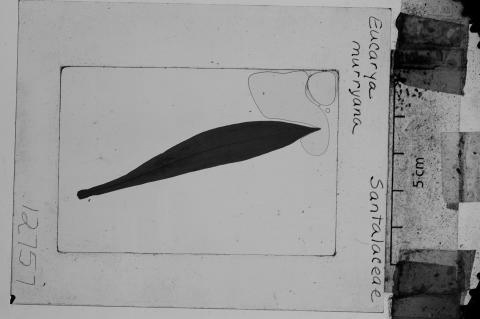 Eucarya
murryana
Santalaceae
5cm
12757